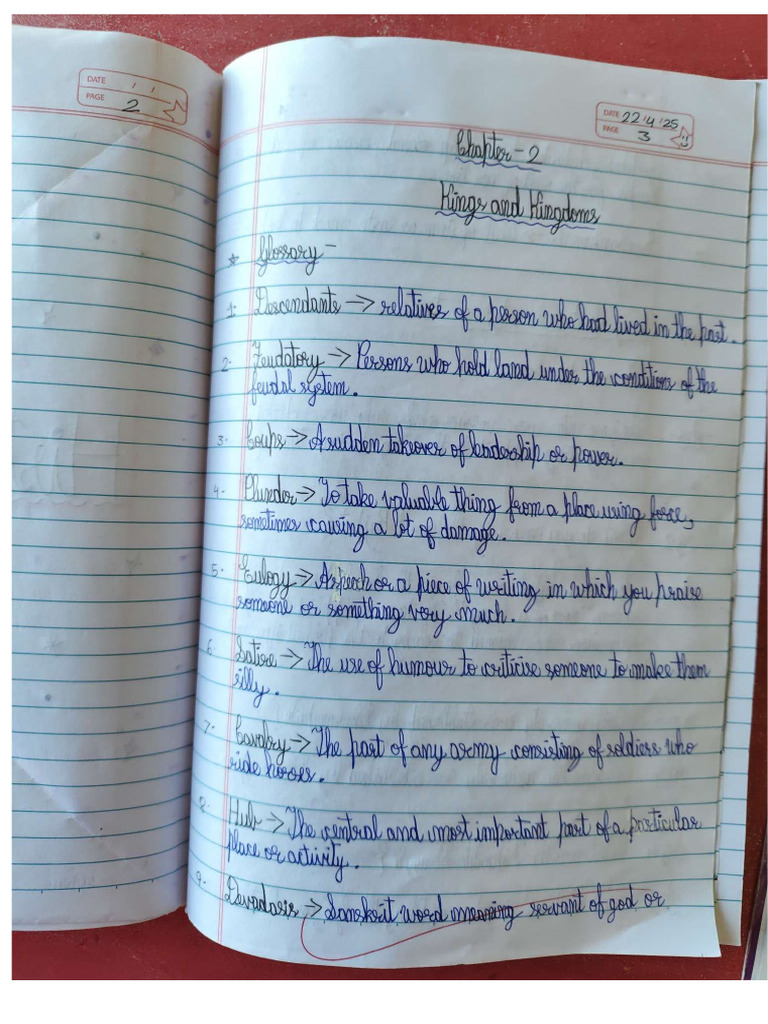 DATE / /
PAGE 2
DATE 22/4/25
PAGE 3
Chapter-2
Kings and Kingdoms
* Glossary-
1. Descendants → relatives of a person who had lived in the past.
2. Feudatory → Persons who hold land under the conditions of the
feudal system.
3. Coups → A sudden takeover of leadership or power.
4. Plunder → To take valuable thing from a place using force,
sometimes causing a lot of damage.
5. Eulogy → A speech or a piece of writing in which you praise
someone or something very much.
6. Satire → The use of humour to criticise someone to make them
silly.
7. Cavalry → The part of any army consisting of soldiers who
ride horses.
8. Hub → The central and most important part of a particular
place or activity.
9. Devadasis → Sanskrit word meaning servant of god or